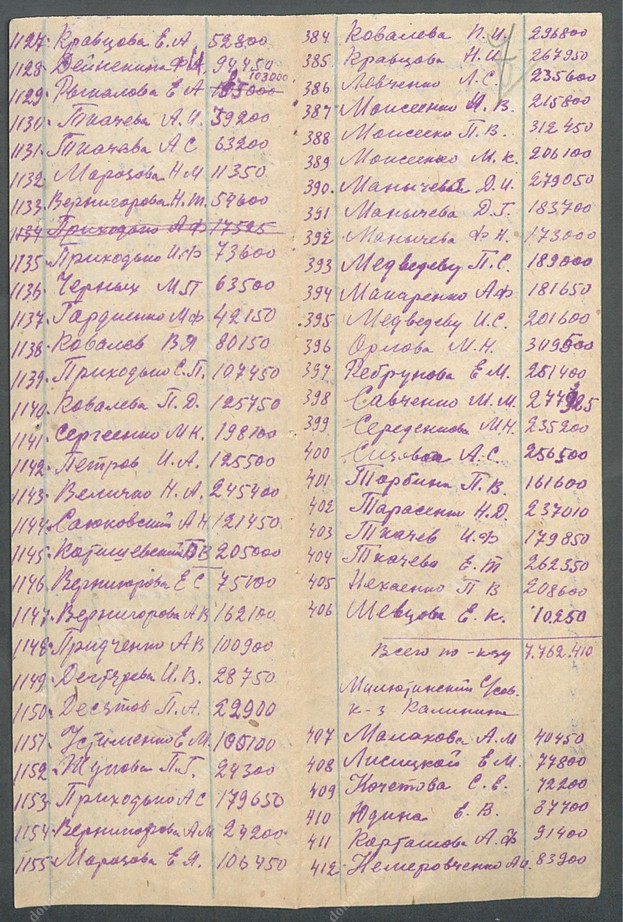 1127. Кравцова Е. А 52800
1128. Дейнекина Ф И. 94450
103000
1129. Рыкалова Е А
1130. Ткачева А. И. 39200
1131. Ткачева А С 63200
1132. Марозова Н М 11350
1133. Вернигорова Н. Т. 54600
1134 Приходько А Ф 17525
1135. Приходько И. Ф 73600
1136. Черных М П 63500
1137. Гордиенко М Ф 42150
1138. Ковалев В Я 80150
1139. Приходько С. П. 107450
1140. Ковалева П. Д. 125750
1141. Сергеенко М К. 198100
1142. Петров И. А. 125500
1143. Величко Н. А. 245400
1144. Саюковский А Н 121450
1145. Катишевский 205000
1146. Вернигорова Е С 75100
1147. Вернигорова А В 162100
1148. Придченко А В 100900
1149. Дегтярева И. В. 28750
1150. Десятов П. А. 22900
1151. Устименко Е М. 105100
1152. Жукова П. Г. 24300
1153. Приходько А С 179650
1154. Вернигорова А М 24200
1155. Марозова Е Я. 106450
384 Ковалева П. И. 296800
385 Кравцова Н. И. 267950
386 Левченко Л. С. 235600
387 Моисеенко И. В. 215800
388 Моисеенко П. В. 312450
389 Моисеенко М. К. 206100
390. Манычева Д. И. 279050
391 Манычева Д. Г. 183700
392 Манычева Ф Н. 173000
393 Медведеву П. С. 189000
394 Макаренко А Ф 181650
395 Медведеву И. С. 201600
396 Орлова М. Н.
397 Ребрунова Е М. 251400
398 Савченко М. М.
399 Середенкова М Н. 235200
400 Сизова А. С. 256500
401 Торбина П. В. 161600
402 Тарасенко Н. Д. 237010
403 Ткачев И. Ф 179850
404 Ткачева Е. Т 262350
405 Нехаенко П В 208600
406 Шевцова Е. К. 10250
Всего по к-зу 7.762.410
Милютинский
к-з Калинина
407 Малахова А. М 40450
408 Лисицкой Е М. 77800
409 Кочетова С. Е. 72200
410 Юдина Е. В. 37700
411 Карташова А. Ф 91400
412 Немеровченко А И. 83900